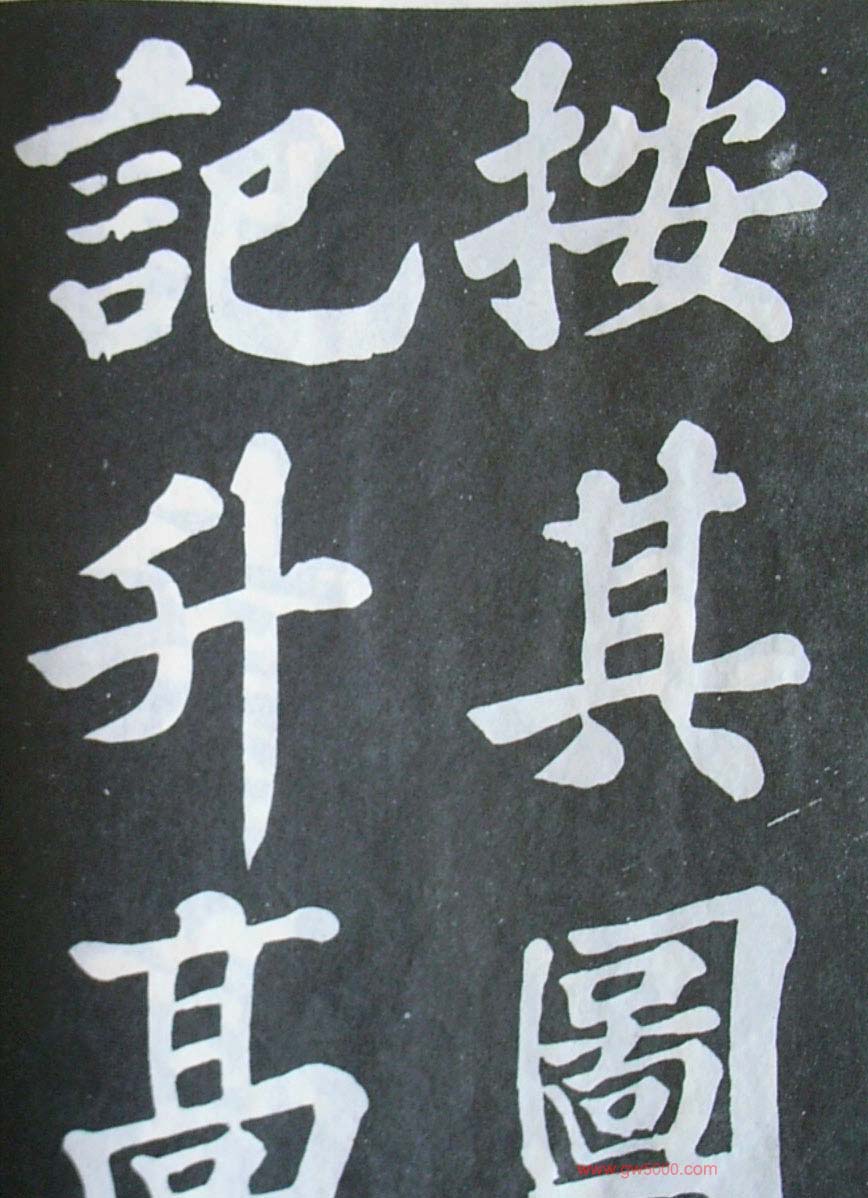 按其圖
記升髙
www.gw5000.com